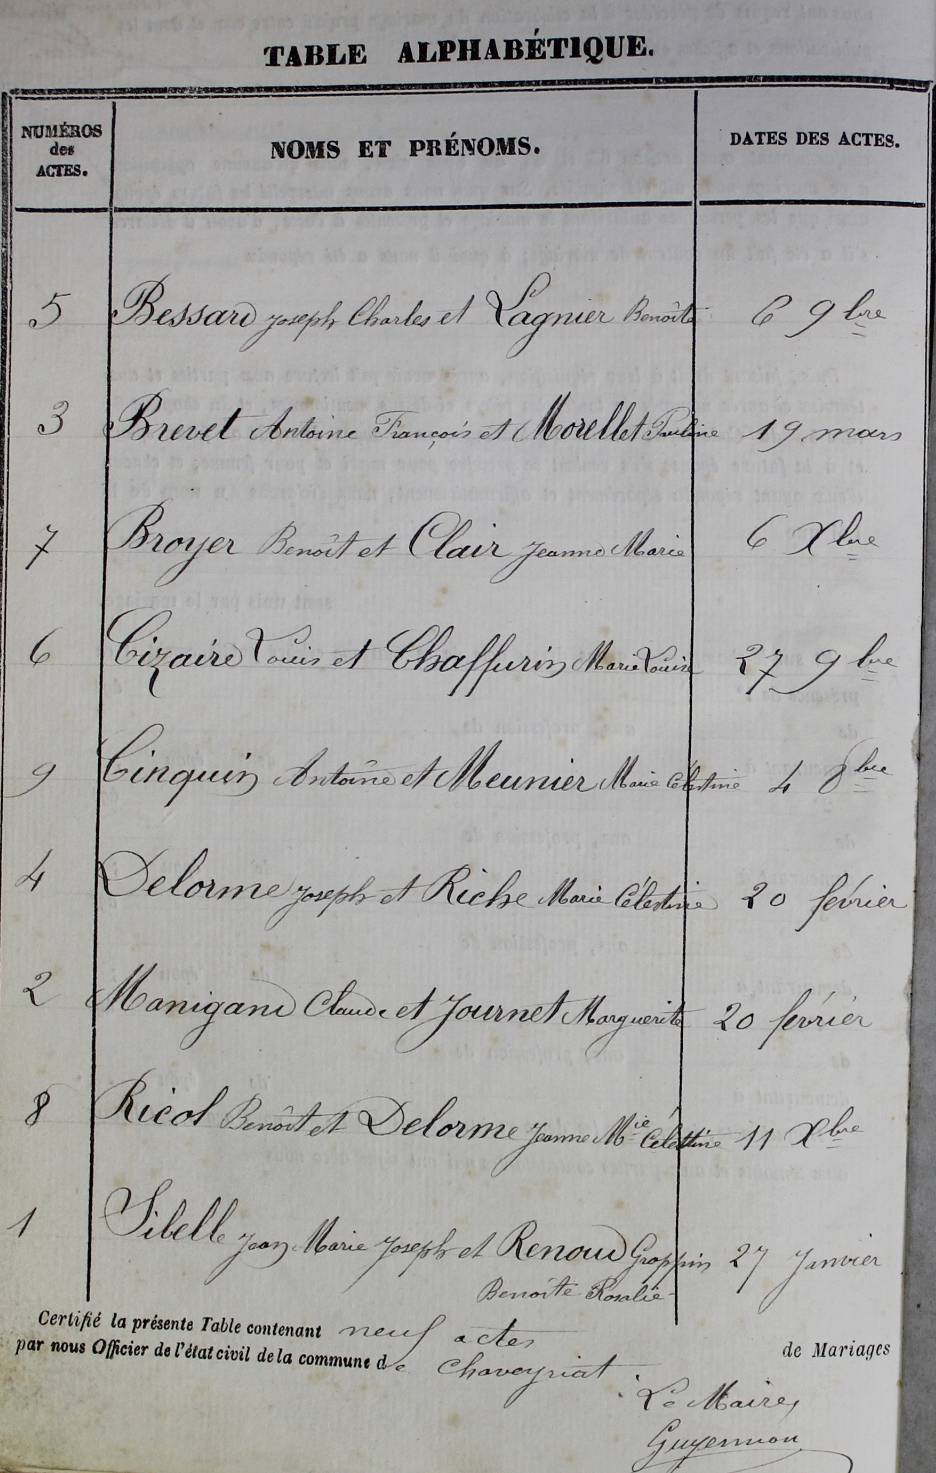 TABLE ALPHABÉTIQUE.
NUMÉROS des ACTES. NOMS ET PRÉNOMS. DATES DES ACTES.
5 Bessard Joseph Charles et Lagnier Benoîte 6 9bre
3 Brevet Antoine François et Morellet Pauline 19 mars
7 Broyer Benoît et Clair Jeanne Marie 6 Xbre
6 Cizaire Louis et Chaffurin Marie Louise 27 9bre
9 Cinquin Antoine et Meunier Marie Célestine 4 8bre
4 Delorme Joseph et Riche Marie Célestine 20 février
2 Manigand Claude et Journet Marguerite 20 février
8 Ricol Benoît et Delorme Jeanne Mie Célestine 11 Xbre
1 Sibelle Jean Marie Joseph et Renoud Groppin 27 Janvier
Benoîte Rosalie
Certifié la présente Table contenant neuf actes de Mariages
par nous Officier de l'état civil de la commune de Chaveyriat
Le Maire,
Guyennon